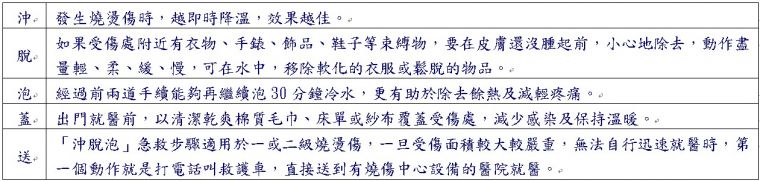 沖 發生燒燙傷時，越即時降溫，效果越佳。
脫 如果受傷處附近有衣物、手錶、飾品、鞋子等束縛物，要在皮膚還沒腫起前，小心地除去，動作盡
量輕、柔、緩、慢，可在水中，移除軟化的衣服或鬆脫的物品。
泡 經過前兩道手續能夠再繼續泡30分鐘冷水，更有助於除去餘熱及減輕疼痛。
蓋 出門就醫前，以清潔乾爽棉質毛巾、床單或紗布覆蓋受傷處，減少感染及保持溫暖。
送 「沖脫泡」急救步驟適用於一或二級燒燙傷，一旦受傷面積較大較嚴重，無法自行迅速就醫時，第
一個動作就是打電話叫救護車，直接送到有燒傷中心設備的醫院就醫。